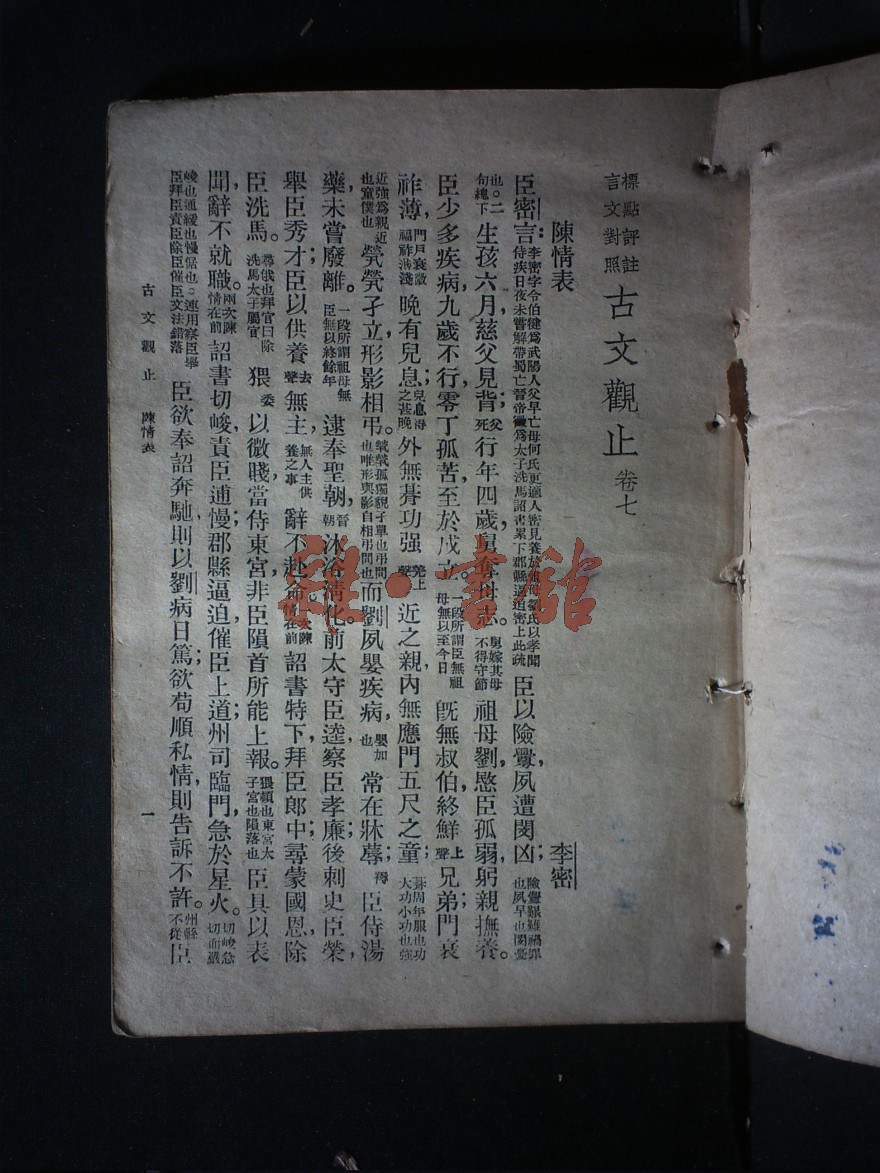 標點評註
言文對照
古文觀止 卷七
陳情表 李密
臣密言：李密字令伯犍爲武陽人父早亡母何氏更適人密見養於祖母劉氏以孝聞侍疾日夜未嘗解帶蜀亡晉帝徵爲太子洗馬詔書累下郡縣逼迫密上此疏臣以險釁，夙遭閔凶；險釁艱難禍罪也夙早也閔憂
也。二句總下生孩六月，慈父見背；父死行年四歲，舅奪母志。舅嫁其母不得守節祖母劉，愍臣孤弱，躬親撫養。
臣少多疾病，九歲不行，零丁孤苦，至於成立。一段所謂臣無祖母無以至今日既無叔伯，終鮮上聲兄弟，門衰
祚薄，門戶衰微福祚淺薄晚有兒息；兒息得之甚晚外無朞功强羌上聲近之親，內無應門五尺之童；朞周年服也功大功小功也強
近強爲親近也童僕也煢煢孑立，形影相弔。煢煢孤獨貌孑單也弔問也唯形與影自相弔問也而劉夙嬰疾病，嬰加也常在牀蓐；褥臣侍湯
藥，未嘗廢離。一段所謂祖母無臣無以終餘年逮奉聖朝，晉朝沐浴清化。前太守臣逵，察臣孝廉；後刺史臣榮，
舉臣秀才。臣以供養去聲無主，無人主供養之事辭不赴命。一次陳情在前詔書特下，拜臣郎中；尋蒙國恩，除
臣洗馬。尋俄也拜官曰除洗馬太子屬官猥委以微賤，當侍東宮，非臣隕首所能上報。猥頓也東宮太子宮也隕落也臣具以表
聞，辭不就職。兩次陳情在前詔書切峻，責臣逋慢；郡縣逼迫，催臣上道；州司臨門，急於星火。切峻急切而嚴
峻也逋緩也慢倨也。連用察臣舉臣拜臣責臣除臣催臣文法錯落臣欲奉詔奔馳，則以劉病日篤；欲苟順私情，則告訴不許。州縣不從臣
古文觀止 陳情表 一
雜·書館